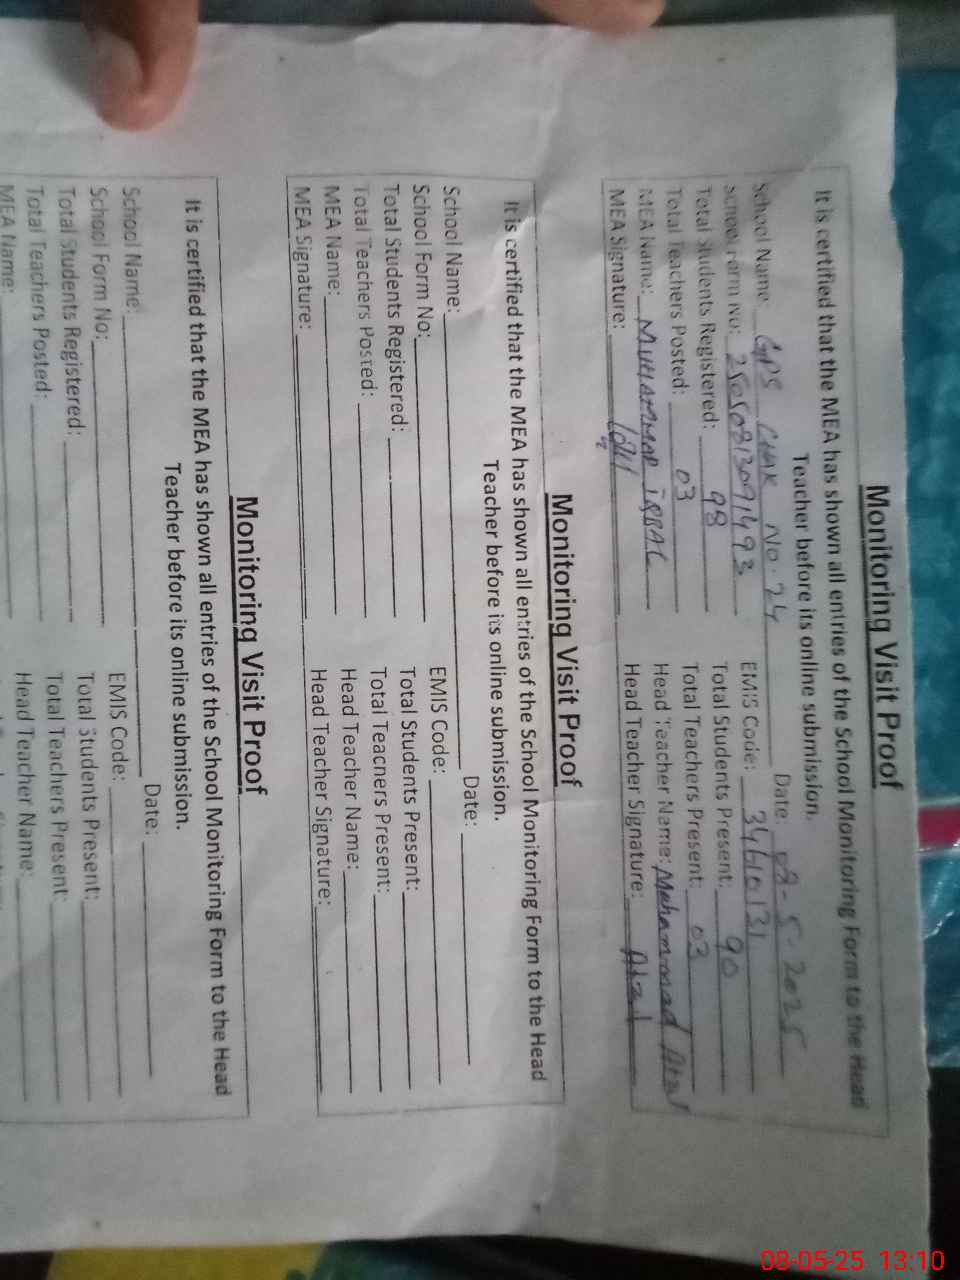 Monitoring Visit Proof
It is certified that the MEA has shown all entries of the School Monitoring Form to the Head
Teacher before its online submission.
School Name: GPS CHAK No. 24 Date: 08-5-2025
School Form No: 25050813091493 EMIS Code: 34610131
Total Students Registered: 98 Total Students Present: 90
Total Teachers Posted: 03 Total Teachers Present: 03
MEA Name: MUHAMMAD IQBAL Head Teacher Name: Mohammad
MEA Signature: Head Teacher Signature:
Monitoring Visit Proof
It is certified that the MEA has shown all entries of the School Monitoring Form to the Head
Teacher before its online submission.
School Name: Date:
School Form No: EMIS Code:
Total Students Registered: Total Students Present:
Total Teachers Posted: Total Teachers Present:
MEA Name: Head Teacher Name:
MEA Signature: Head Teacher Signature:
Monitoring Visit Proof
It is certified that the MEA has shown all entries of the School Monitoring Form to the Head
Teacher before its online submission.
School Name: Date:
School Form No: EMIS Code:
Total Students Registered: Total Students Present:
Total Teachers Posted: Total Teachers Present:
MEA Name: Head Teacher Name:
08-05-25 13:10